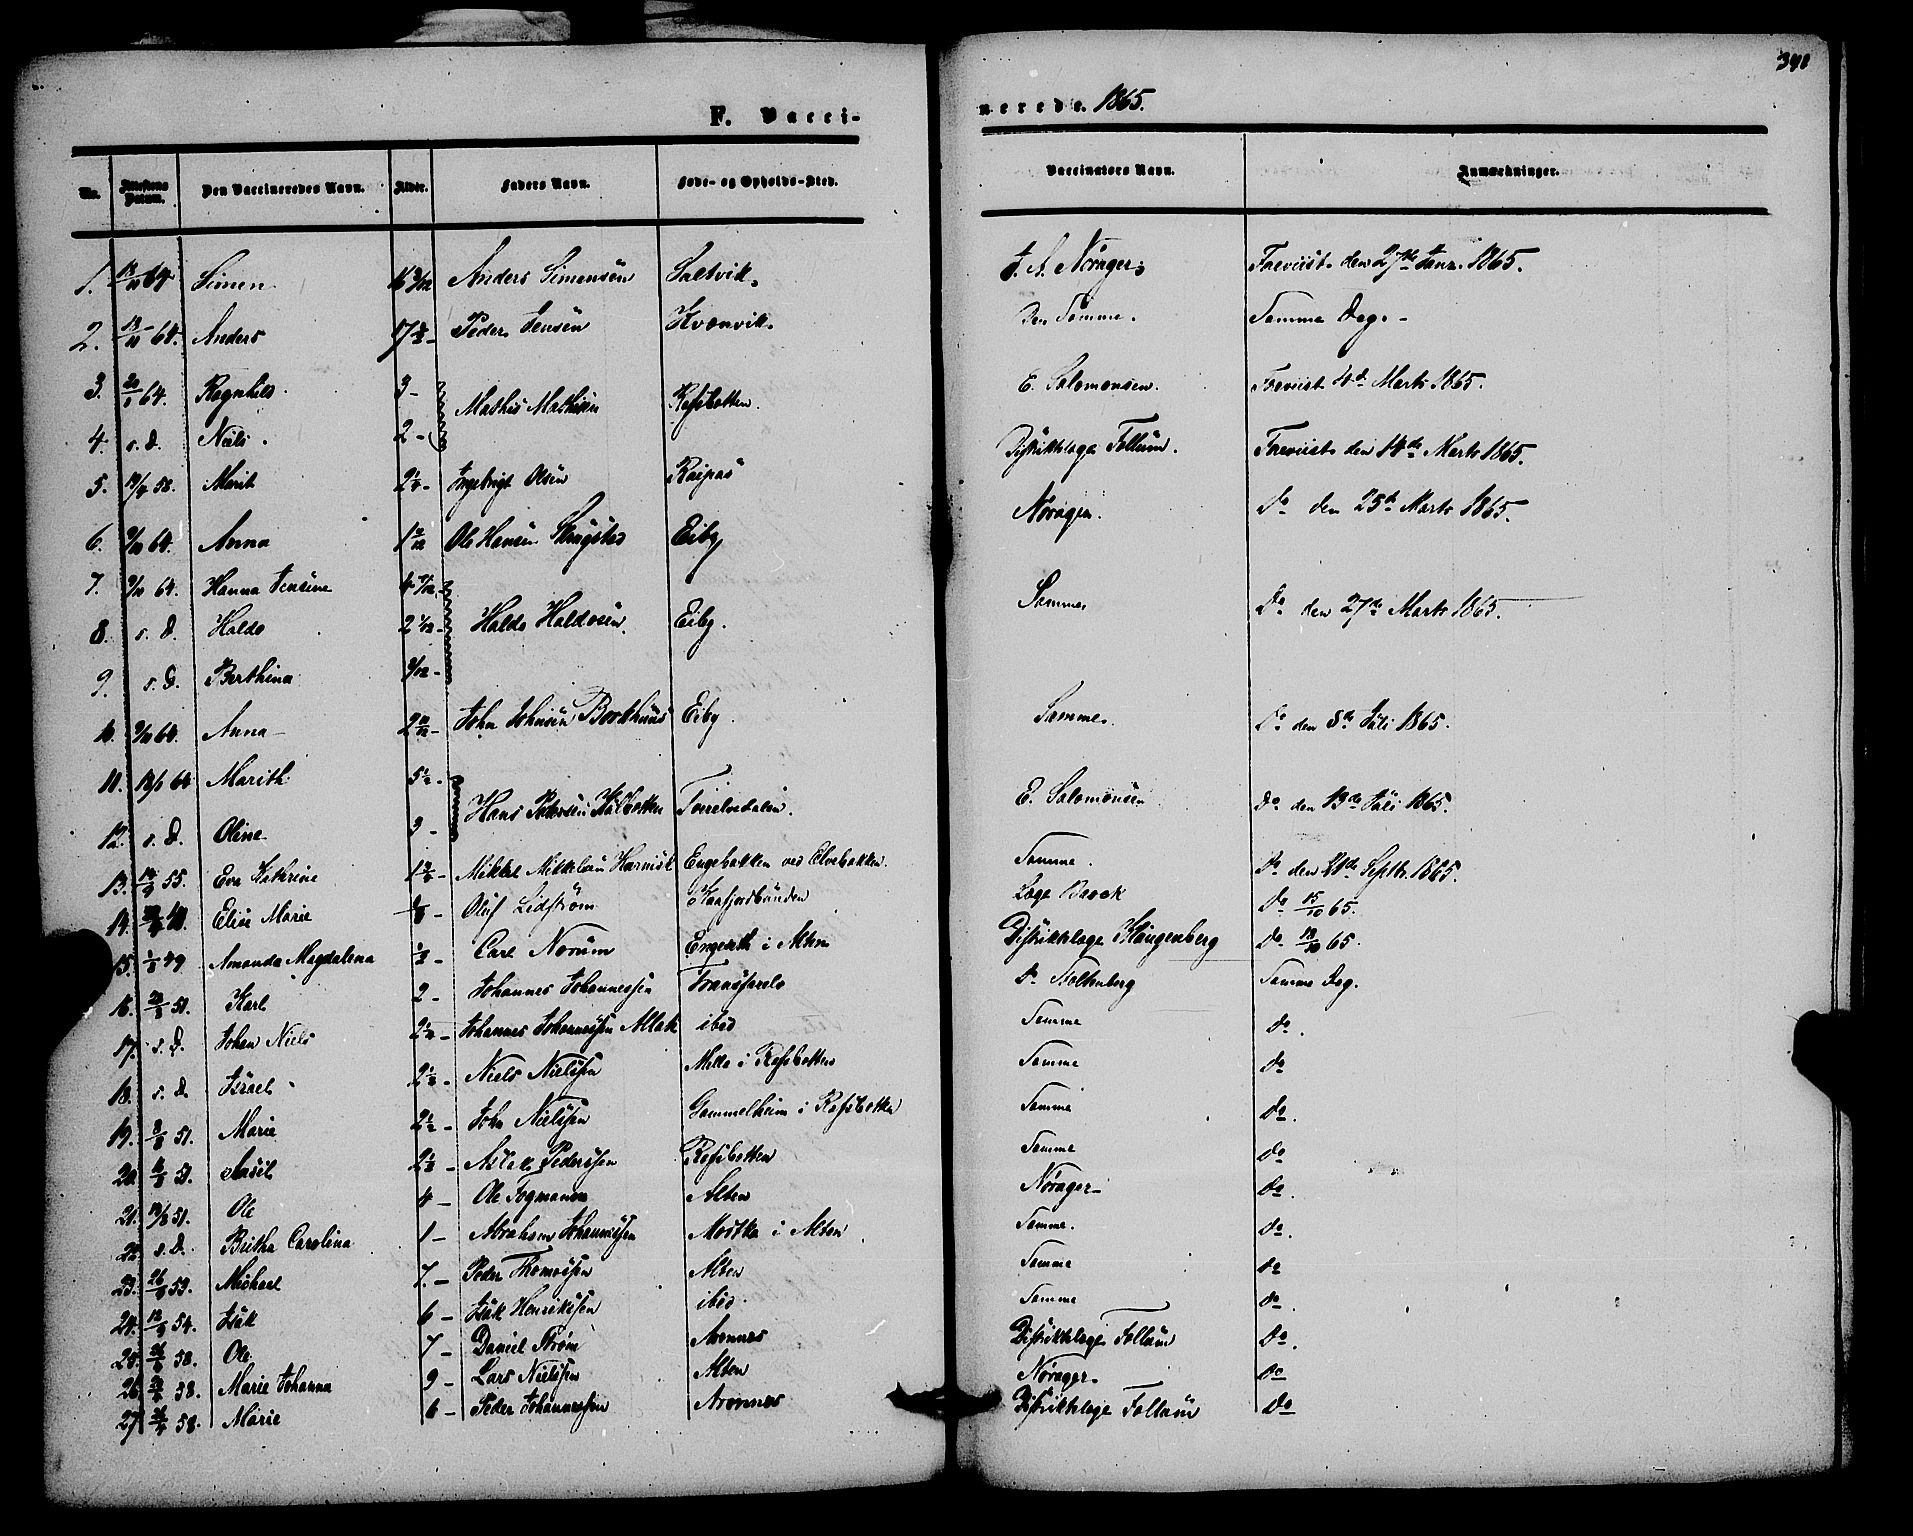 341
F. Vacci- nerede. 1865.
No. Attestens Datum. Den Vaccineredes Navn. Alder. Faders Navn. Føde- og Opholds-Sted. Vaccinators Navn. Anmærkninger.
1. 64. Simen Anders Simensen Saltvik. J. A. Norager. Foreviist den 27de Janr. 1865.
2. Anders 17 Peder Jensen Kvænvik. Den Samme. Samme Dag.
3. 64. Ragnhild 3 - Mathis Mathisen Refsbotten. E. Salomonsen. Foreviist 4d. Marts 1865.
4. s. D. Niels. 2 - Distriktslæge Follum. Foreviist den 14de Marts 1865.
5. 58. Marit 2½ - Ingebrigt Olsen Raipas Norager. Do den 25d Marts 1865.
6. 9/10 64. Anna Ole Hansen Eiby
7. 9/10 64. Hanna Jensine Samme Do den 27de Marts 1865.
8. s. D. Haldo Haldo Haldosen Eiby.
9. s. D. Berthina
10. 9/10 64. Anna John Johnsen Borkhuus Eiby. Samme. Do den 8de Juli 1865.
11. 64 Marith 5½ - Hans Petersen Tverelvedalen. E. Salomonsen Do den 13de Juli 1865.
12. s. D. Oline 3 -
13. 55. Eva Kathrine Mikkel Mikkelsen Engebakken ved Elvebakken. Samme. Do den 21de Septbr. 1865.
14. Elise Marie Oluf Lidstrøm Kaafjordbunden Læge Baack Do 15/10 65.
15. 49 Amanda Magdalena ½ - Carl Norum Engeneth i Alten Distriktslæge Klingenberg Do 65.
16. 51. Karl 2 - Johannes Johannessen Transfarelv Do Stoltenberg Samme Dag.
17. s. D. Johan Niels 2½ - Johannes Johannessen ibid Samme Do.
18. s. D. Israel 2½ - Niels Nielssen Mella i Refsbotten Samme Do
19. 51. Marie 2½ - John Nielssen Gammelheim i Refsbotten Samme Do.
20. 51. 2½ - Aslak Pederssen Refsbotten Samme Do
21. 51. Ole 4 - Ole Fogmann Alten Norager Do.
22. s. D. Britha Carolina 1 - Abraham Johannessen i Alten Samme. Do.
23. 53. Michael 7. - Peder Thomassen Alten Samme Do
24. 54. Isak 6 - Isak Henrikssen ibid. Samme Do.
25. 58. Ole 7 - Daniel Strøm Aronnes Distriktslæge Follum Do.
26. 58. Marie Johanna 9 - Lars Nielssen Alten Norager. Do
27. 58. Marie 6 - Peder Johannessen Aronnes Distriktslæge Follum Do